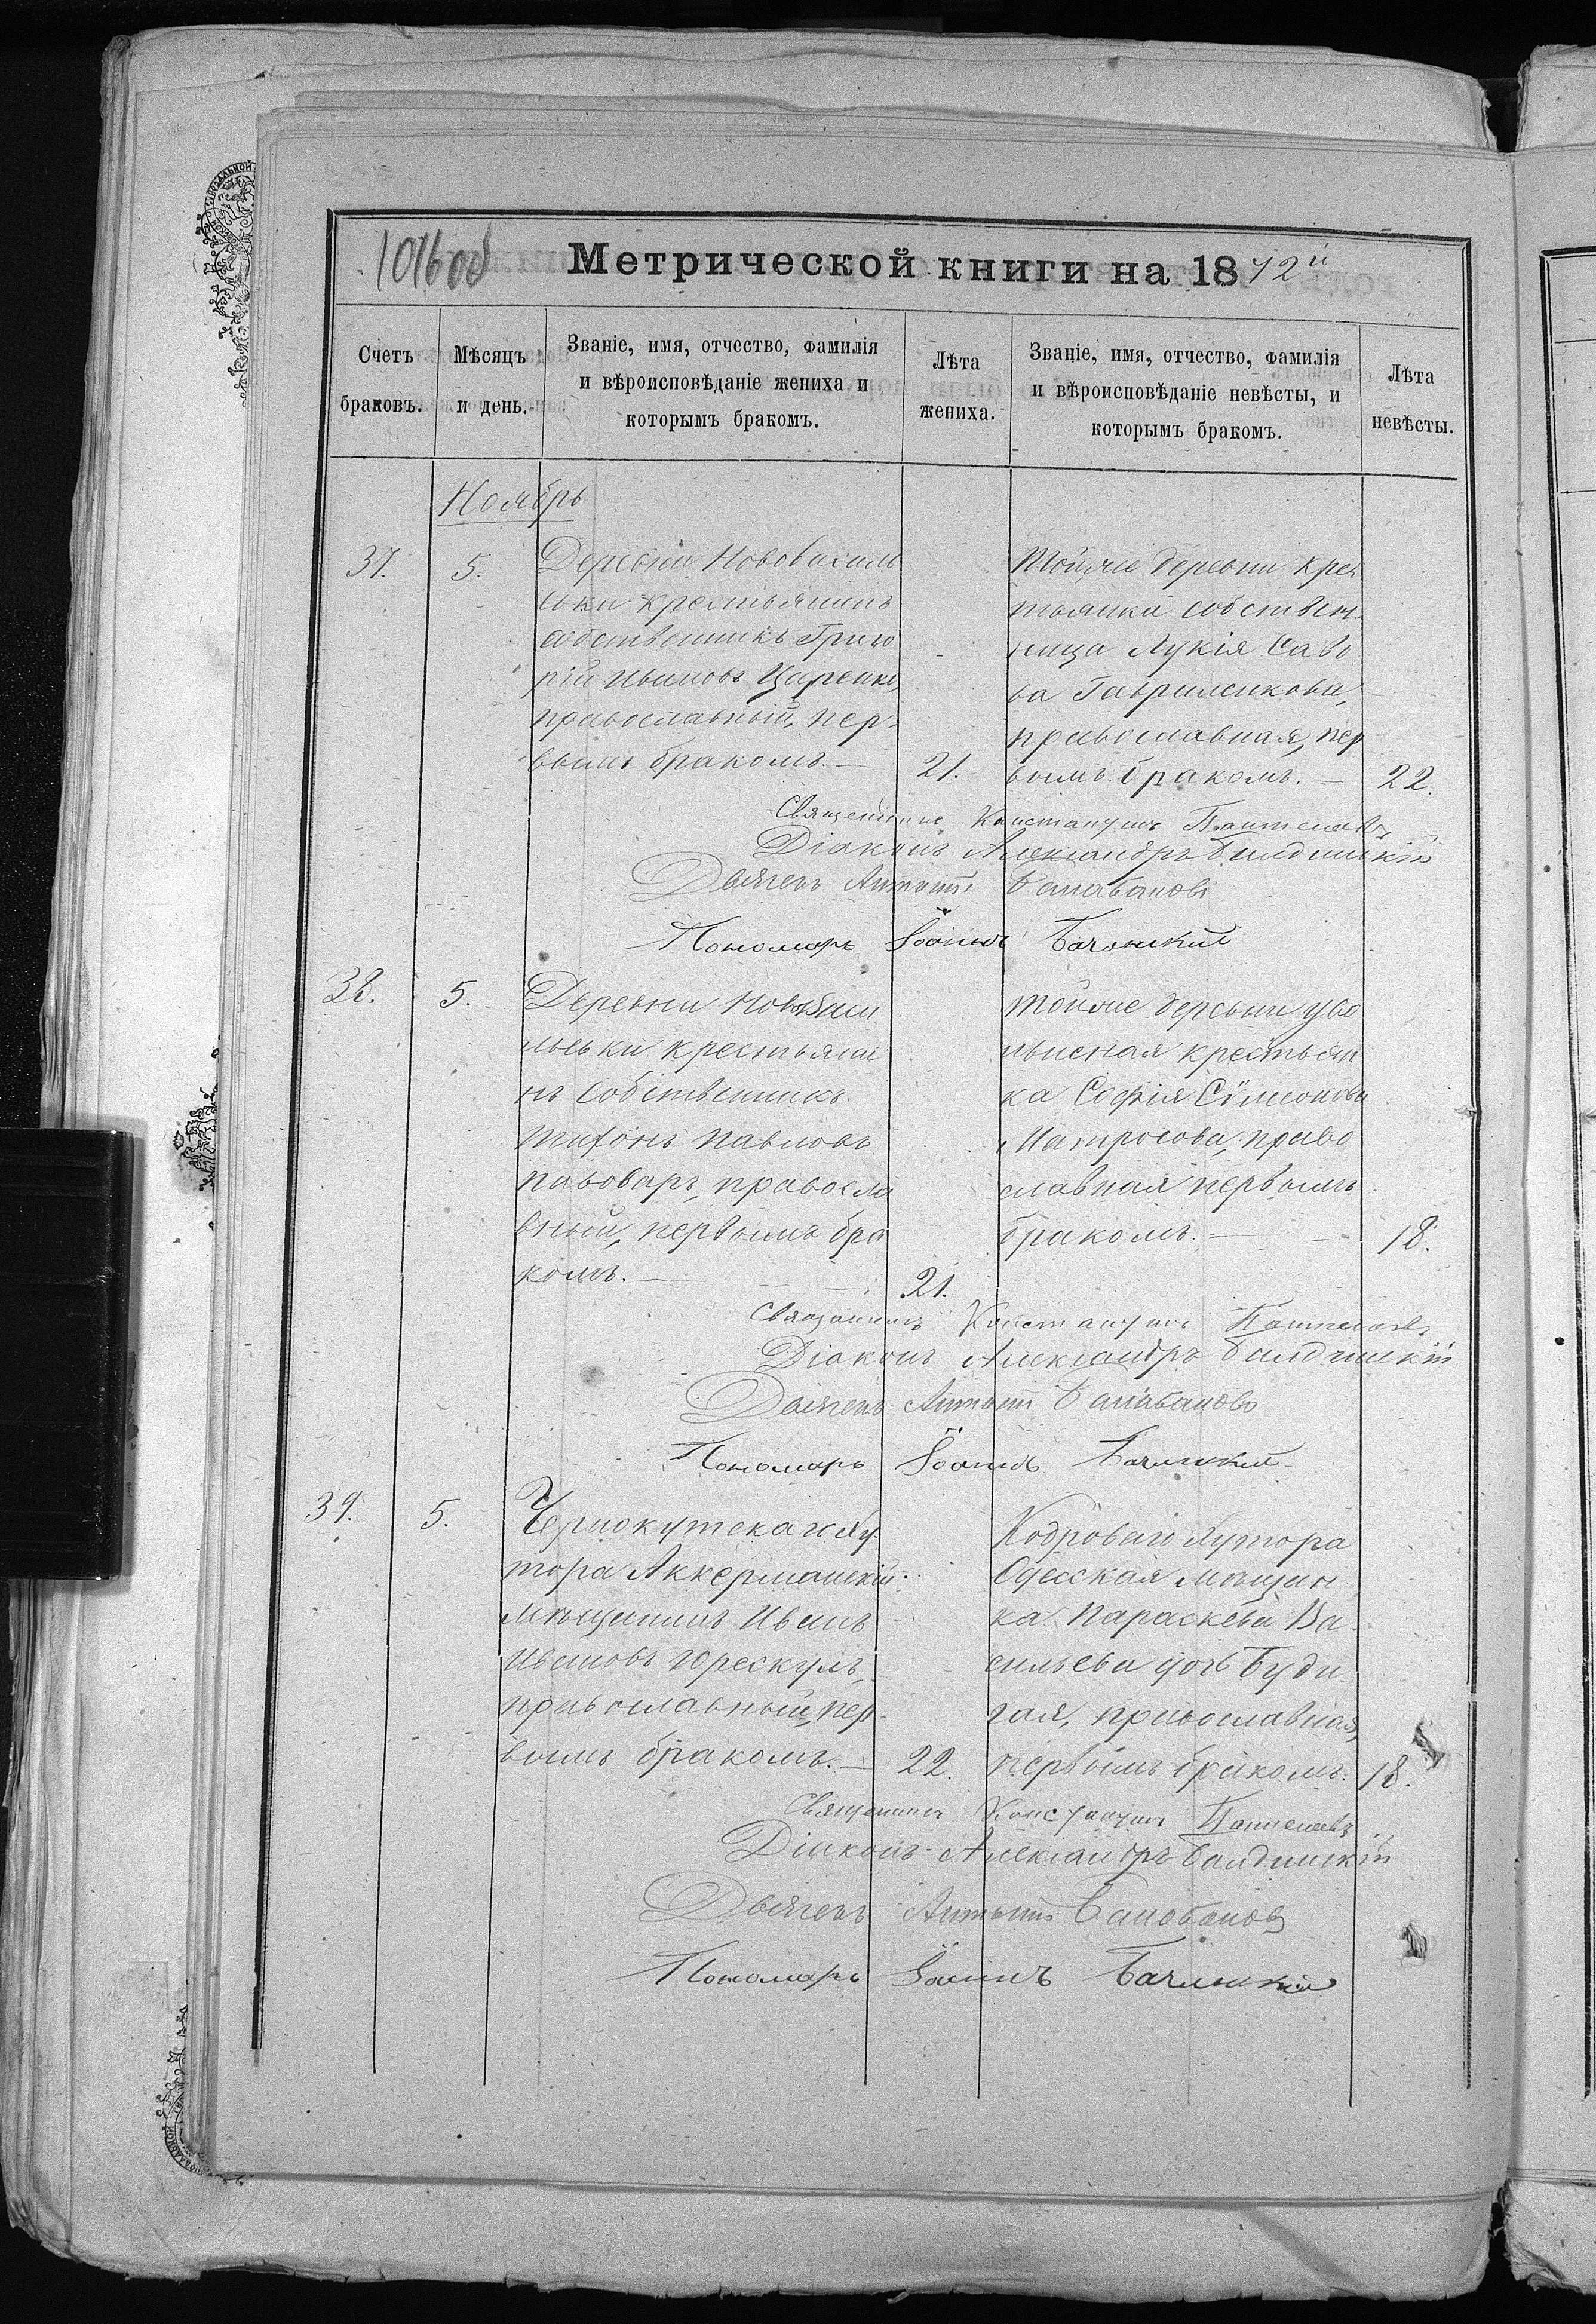 1016 об
Метрической книги на 1872й
Счетъ браковъ.
Мѣсяцъ и день.
Званіе, имя, отчество, фамилія и вѣроисповѣданіе жениха и которымъ бракомъ.
Лѣта жениха.
Званіе, имя, отчество, фамилія и вѣроисповѣданіе невѣсты, и которымъ бракомъ.
Лѣта невѣсты.
Ноябрь
37.
5.
Деревни Нововасиль
евки крестьянинъ
собственникъ Григо
рій Ивановъ Царенко,
православный, пер-
вымъ бракомъ.—
21.
Тойже деревни крес
тьянка собствен-
ница Лукія Савво
ва Гавриленкова,
православная, пер
вымъ бракомъ.—
22.
Священникъ Константинъ
Діаконъ Александръ
Дьячекъ Антоній Балабановъ
Пономарь Іоаннъ
38.
5.
Деревни Нововаси
льевки крестьяни
нъ собственникъ
Тихонъ Павловъ
Пивоваръ, правосла
вный, первымъ бра
комъ.—
21.
Тойже деревни уво
льненая крестьян
ка Софія Сѵмеонова
Матросова, право
славная первымъ
бракомъ.—
18.
Священникъ Константинъ
Діаконъ Александръ
Дьячекъ Антоній Балабановъ
Пономарь Іоаннъ
39.
5.
ху-
тора Аккерманскій
мѣщанинъ Иванъ
Ивановъ Юрескулъ,
православный, пер-
вымъ бракомъ.—
22.
Кодроваго хутора
Одесская мѣщан
ка Параскева Ва-
сильева дочь Буди-
гая, православная,
первымъ бракомъ.
18.
Священникъ Константинъ
Діаконъ Александръ
Дьячекъ Антоній Балабановъ
Пономарь Іоаннъ